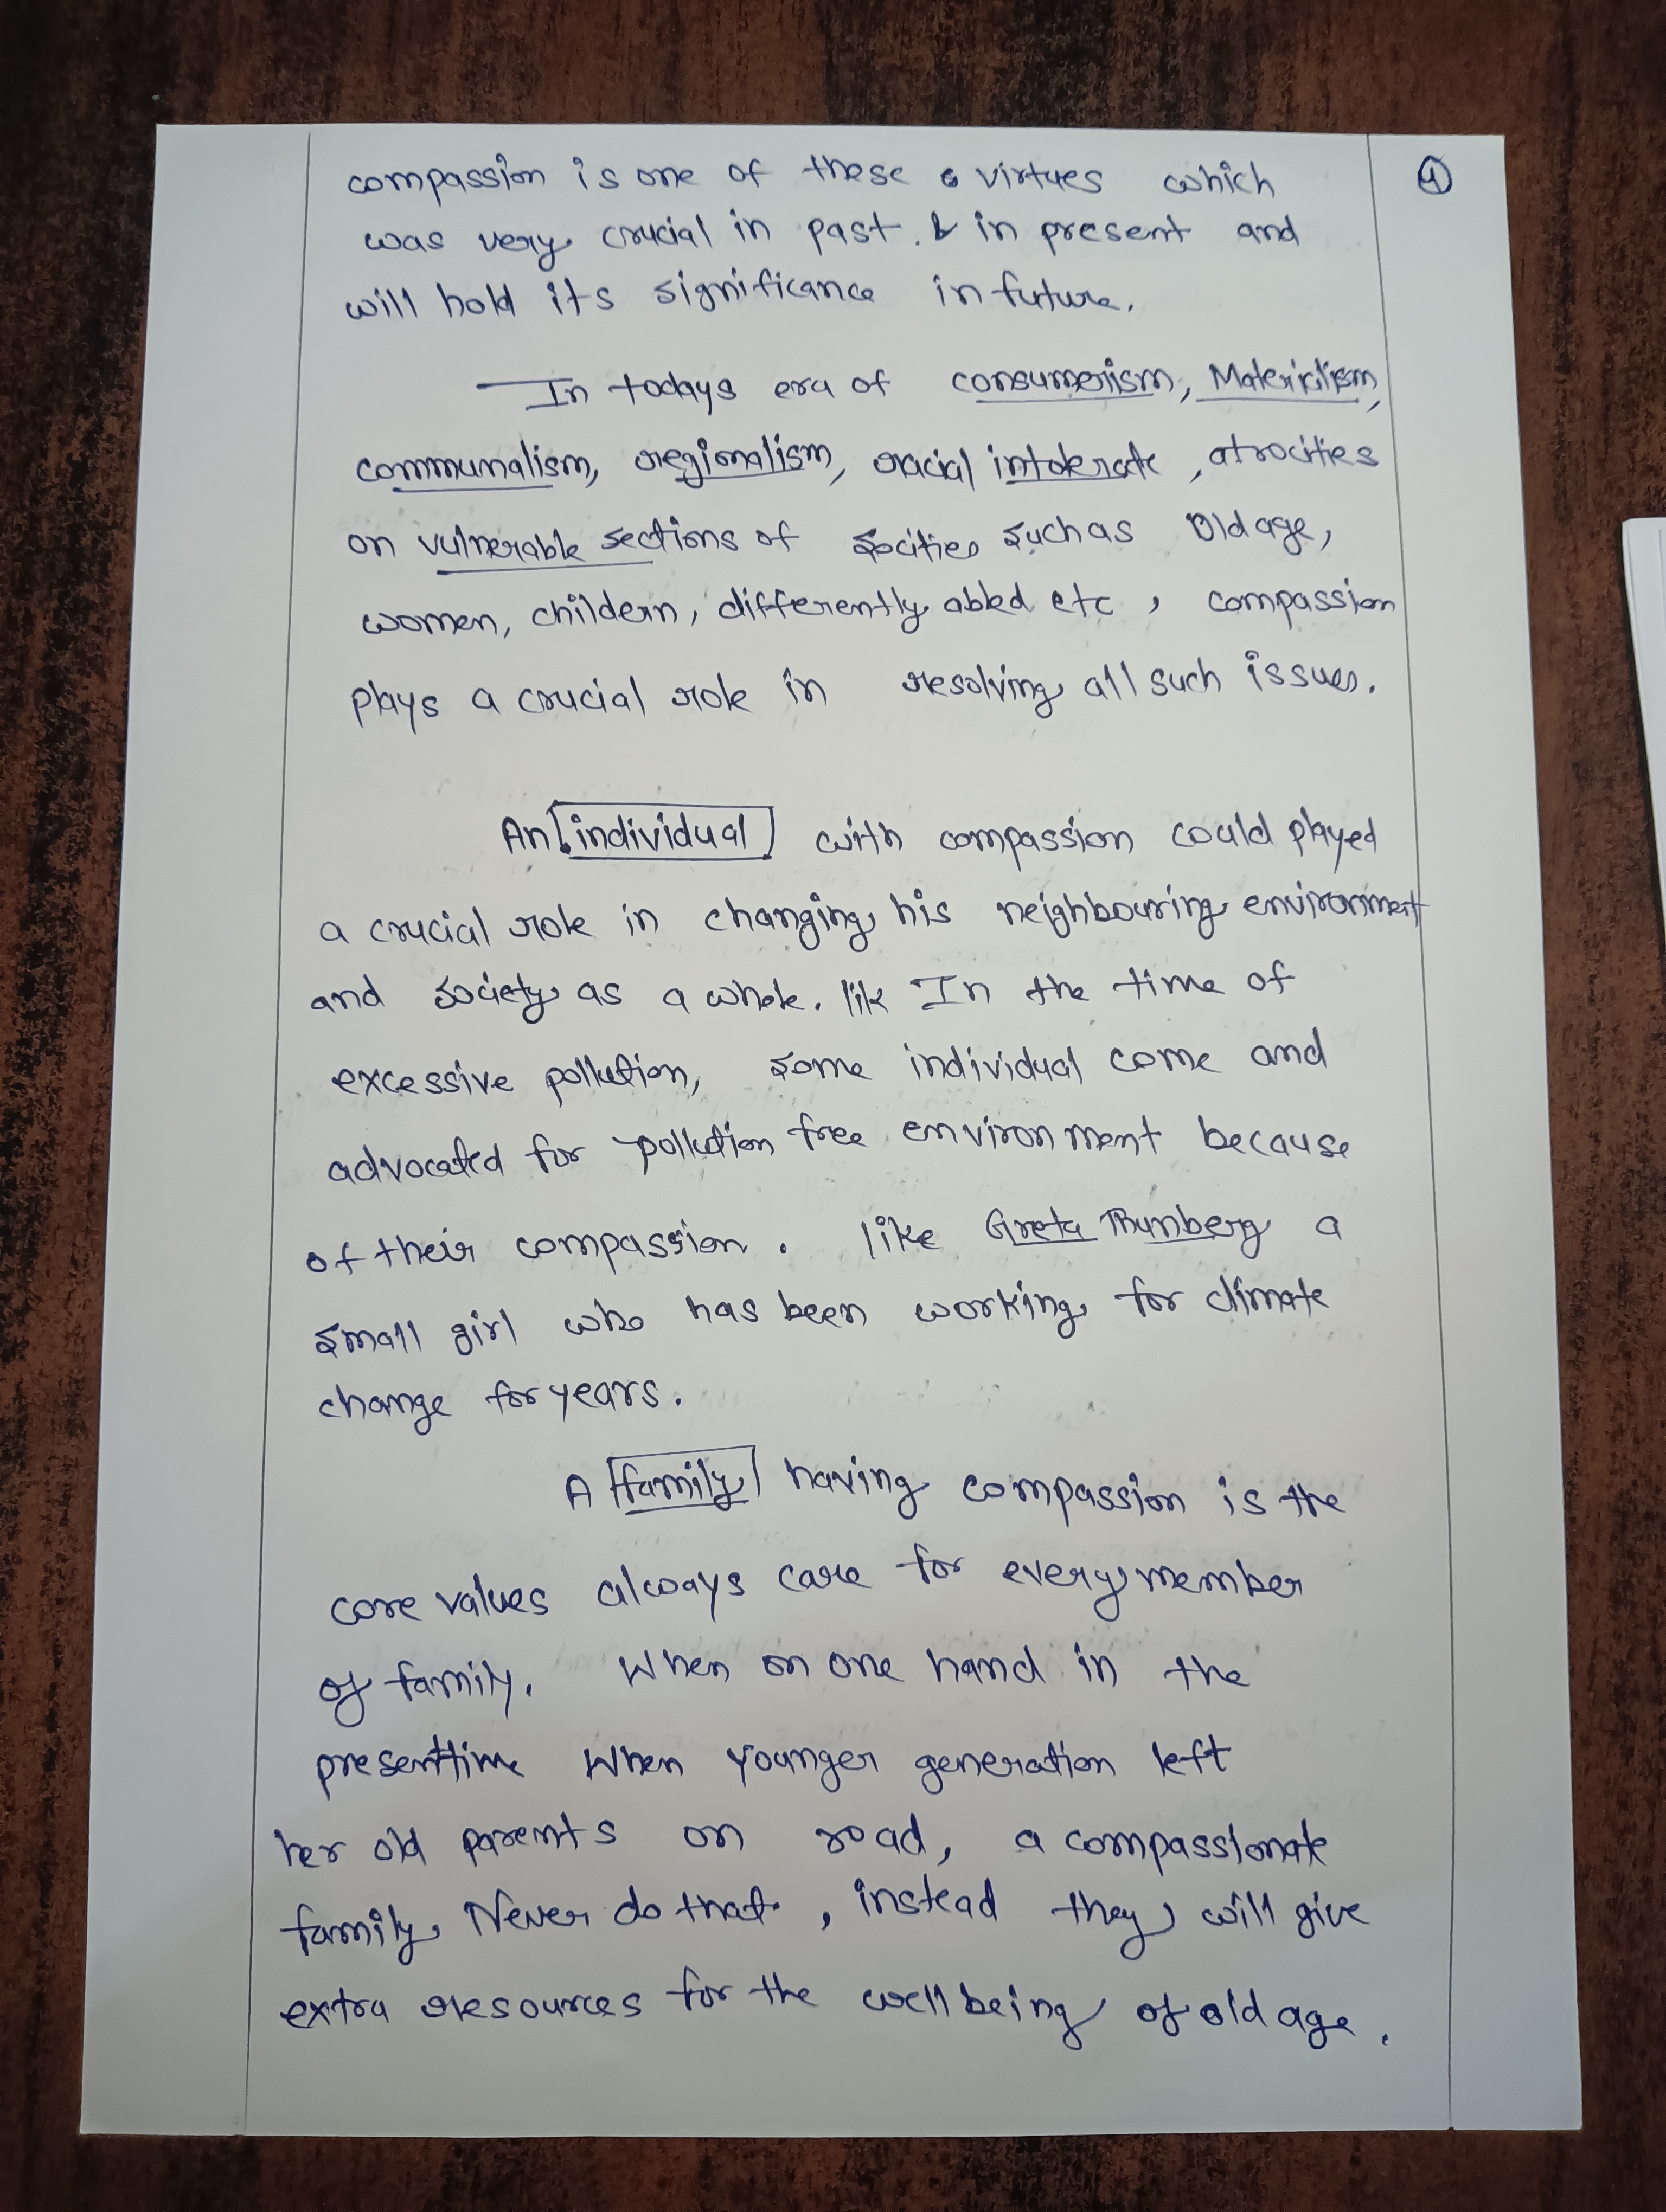 compassion is one of these virtues which
④
was very crucial in past. & in present and
will hold its significance in future.
In todays era of consumerism, Materialism,
communalism, regionalism, racial intolerate, atrocities
on vulnerable sections of socities such as Old age,
women, childern, differently abled etc, compassion
plays a crucial role in resolving all such issues.
An individual with compassion could played
a crucial role in changing his neighbouring environment
and society as a whole. lik In the time of
excessive pollution, some individual come and
advocated for pollution free environment because
of their compassion. like Greta Thunberg a
small girl who has been working for climate
change for years.
A family having compassion is the
core values always care for every member
of family. When on one hand in the
present time When younger generation left
her old parents on road, a compassionate
family Never do that, instead they will give
extra resources for the well being of old age.